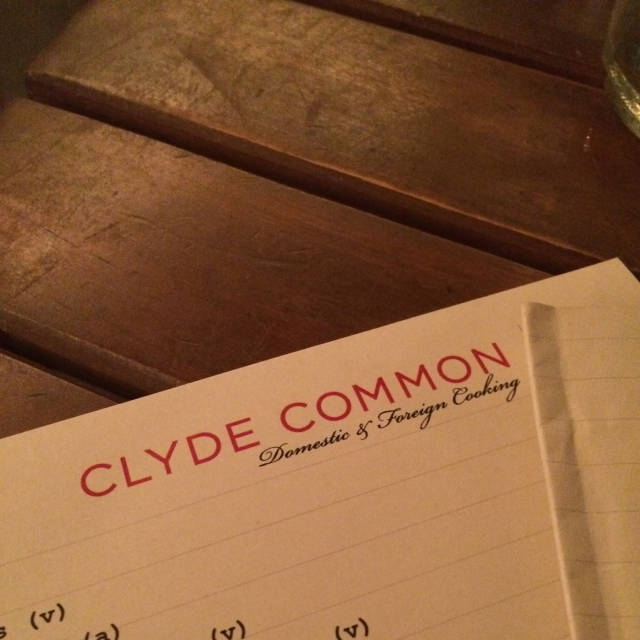 CLYDE COMMON
Domestic & Foreign Cooking
s (v)
(a) (v) (v)